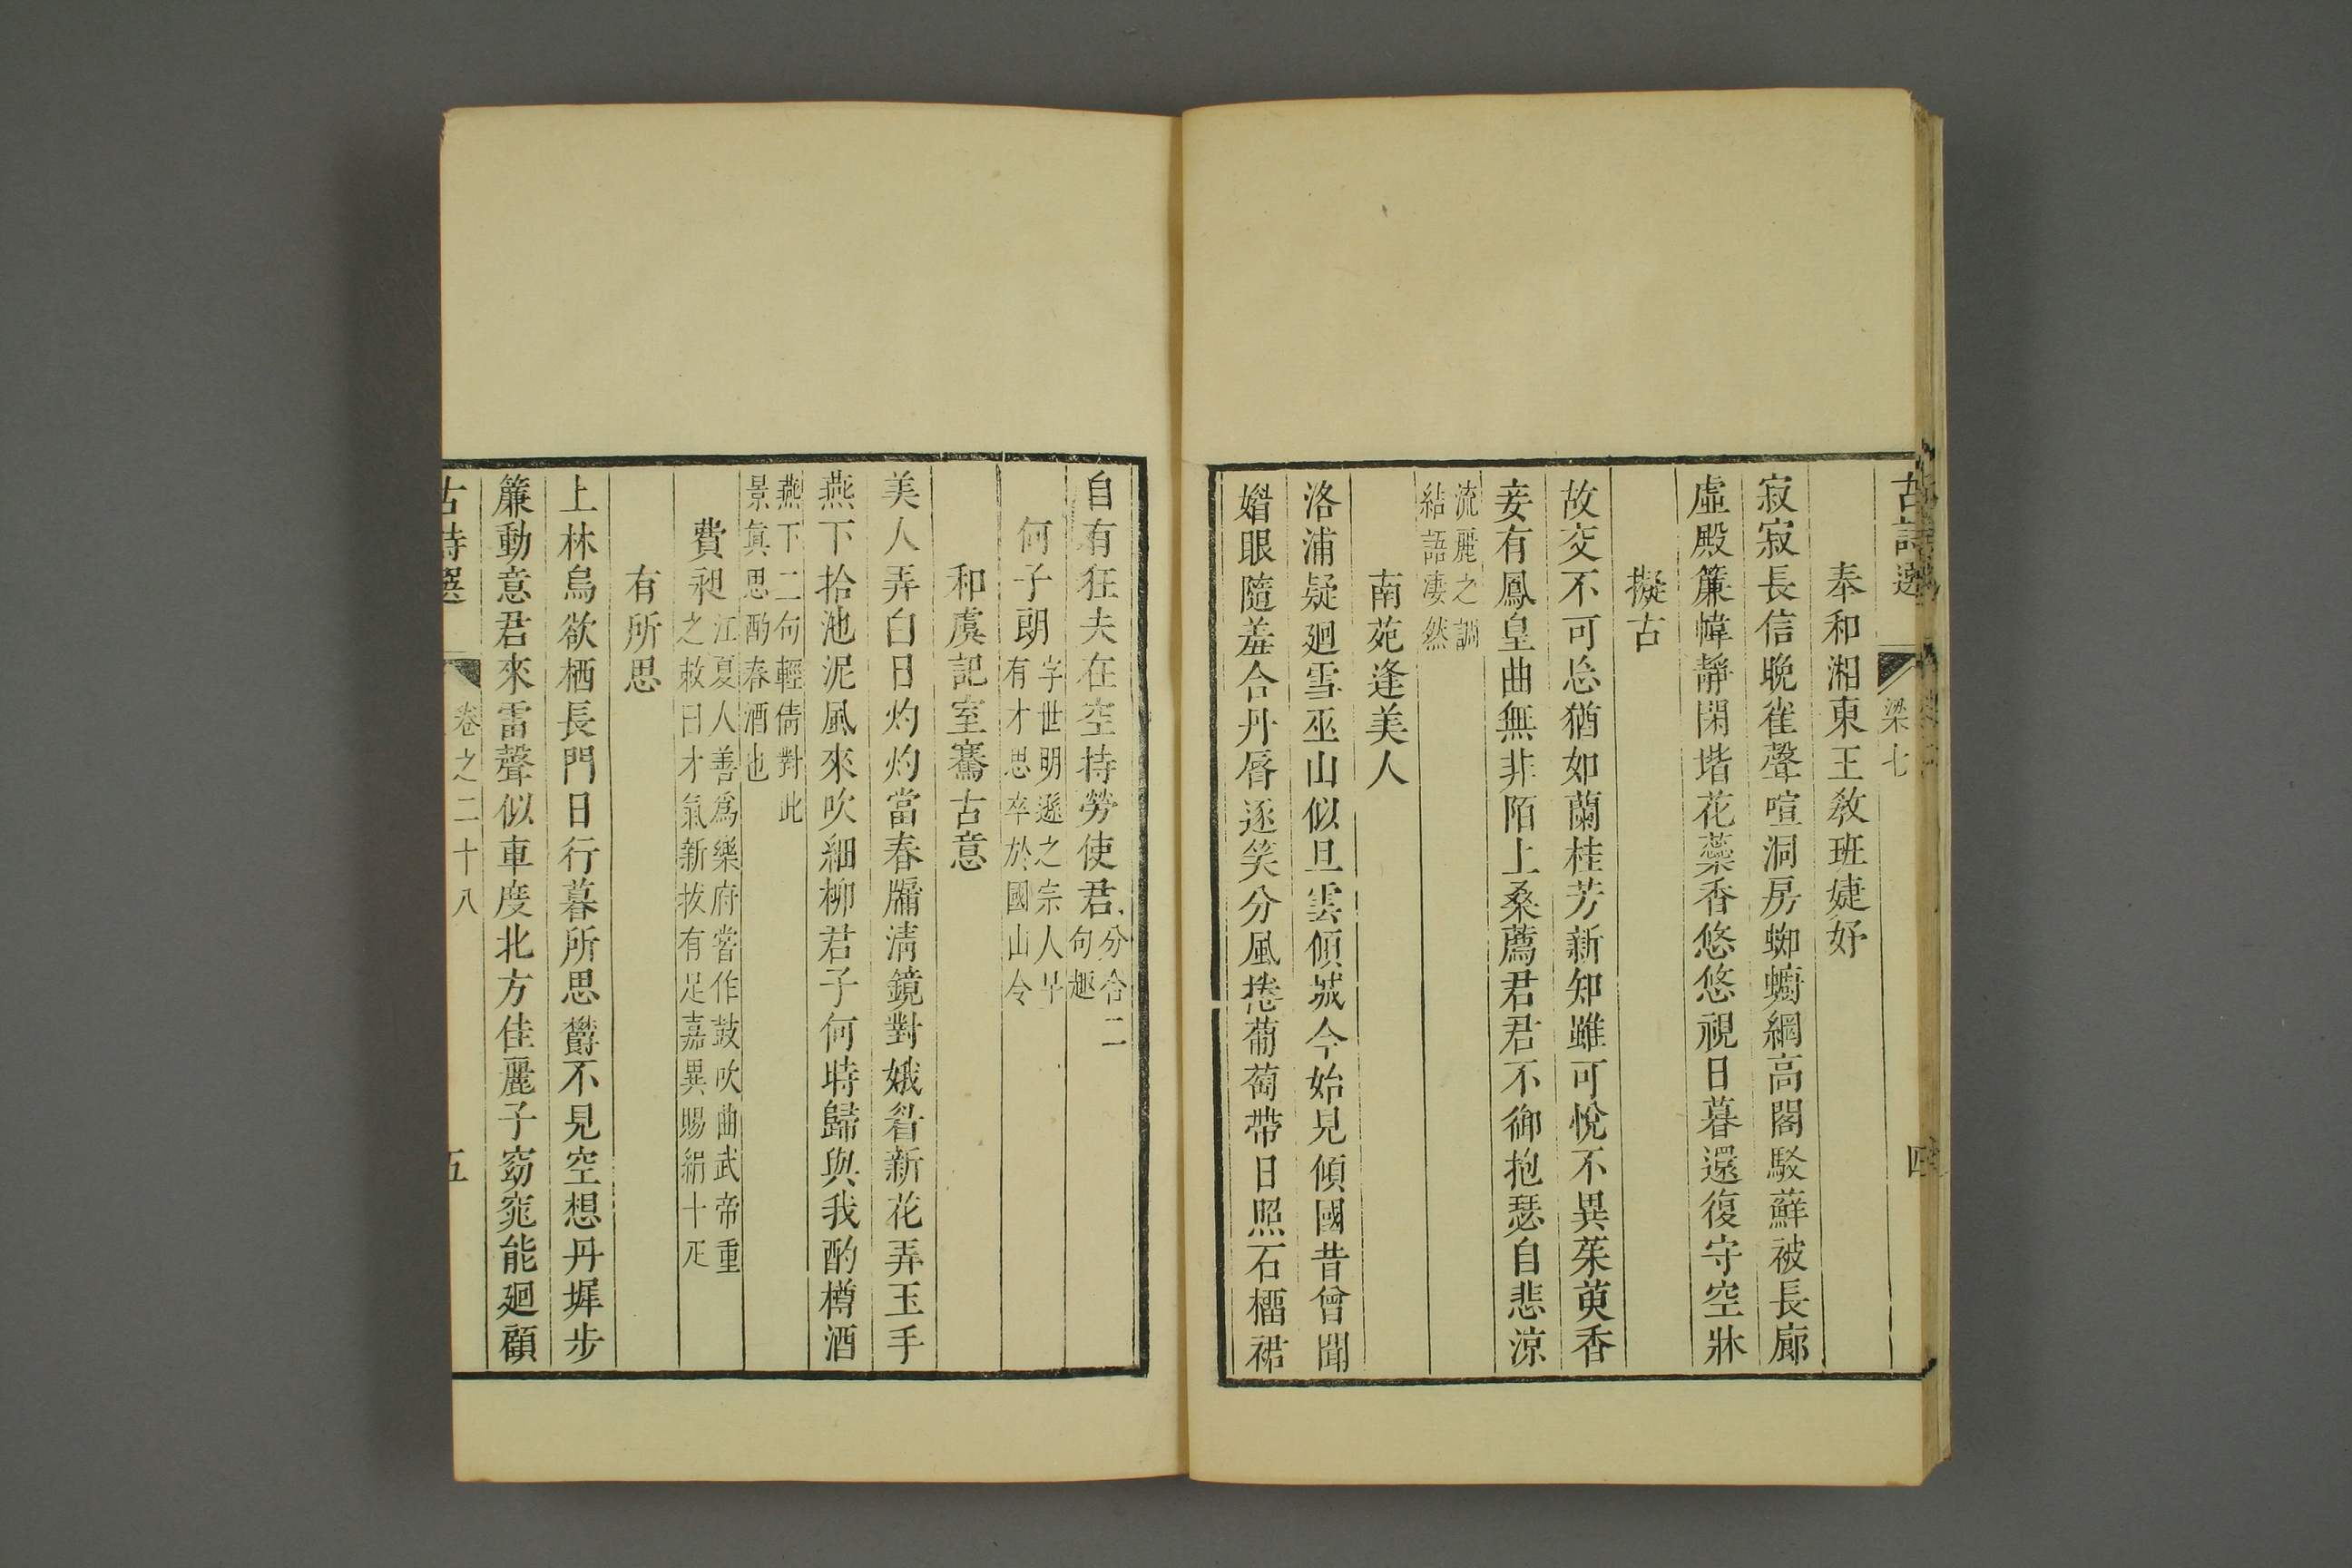 古詩選 梁七 四
奉和湘東王教班婕妤
寂寂長信晚雀聲喧洞房蜘蟵網高閣駁蘚被長廊
虛殿簾幃靜閑堦花蘂香悠悠視日暮還復守空牀
擬古
故交不可忘猶如蘭桂芳新知雖可悅不異茱萸香
妾有鳳皇曲無非陌上桑薦君君不御抱瑟自悲涼
流麗之調
結語淒然
南苑逢美人
洛浦疑廻雪巫山似旦雲傾城今始見傾國昔曾聞
媚眼隨羞合丹唇逐笑分風捲葡萄帶日照石榴裙
自有狂夫在空持勞使君 分合二
句趣
何子朗 字世明遜之宗人早
有才思卒於國山令
和虞記室騫古意
美人弄白日灼灼當春牖淸鏡對娥眉新花弄玉手
燕下拾池泥風來吹細柳君子何時歸與我酌樽酒
燕下二句輕倩對此
景眞思酌春酒也
費昶 江夏人善爲樂府嘗作鼓吹曲武帝重
之敕曰才氣新拔有足嘉異賜絹十疋
有所思
上林烏欲栖長門日行暮所思鬱不見空想丹墀步
簾動意君來雷聲似車度北方佳麗子窈窕能廻顧
古詩選 卷之二十八 五